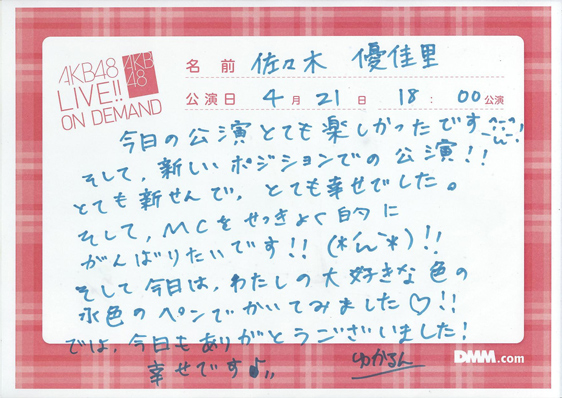 AKB48
LIVE!!
ON DEMAND
AKB
48
名前 佐々木 優佳里
公演日 4月21日 18:00公演
今日の公演とても楽しかったです
そして,新しいポジションでの公演!!
とても新せんで,とても幸せでした。
そして,MCをせっきょく的に
がんばりたいです!! (*´ω`*)!!
そして今日は,わたしの大好きな色の
水色のペンでかいてみました♡!!
では,今日もありがとうございました!
幸せです♪,, ゆかるん
DMM.com